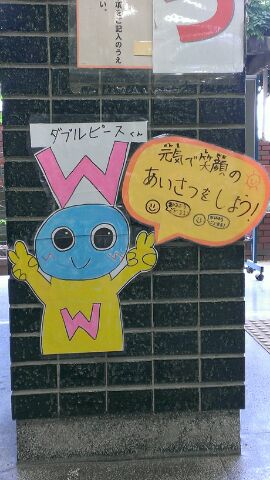 項をご記入のうえ
い。
う
ダブルピースくん
W
W
元気で笑顔の
あいさつをしよう!